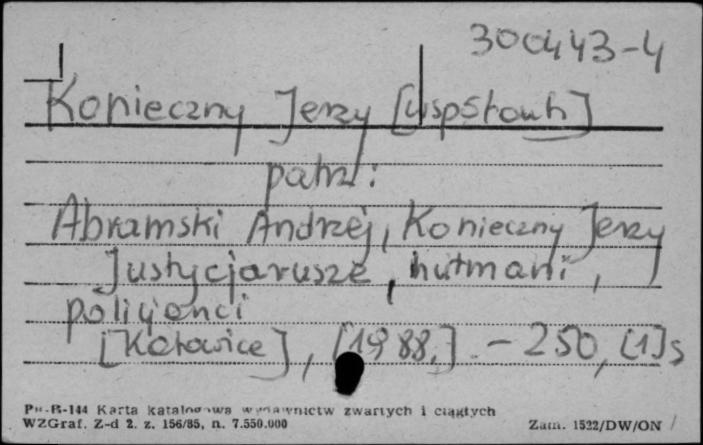 300443-4
Konieczny Jerzy [współaut.]
patrz:
Abramski Andrzej, Konieczny Jerzy
Justycjariusze, hutmani,
policjanci
[Katowice], [1988.] - 250, [1]s
Pu-B-144 Karta katalogowa wydawnictw zwartych i ciągłych
WZGraf. Z-d 2. z. 156/85, n. 7.550.000
Zam. 1522/DW/ON